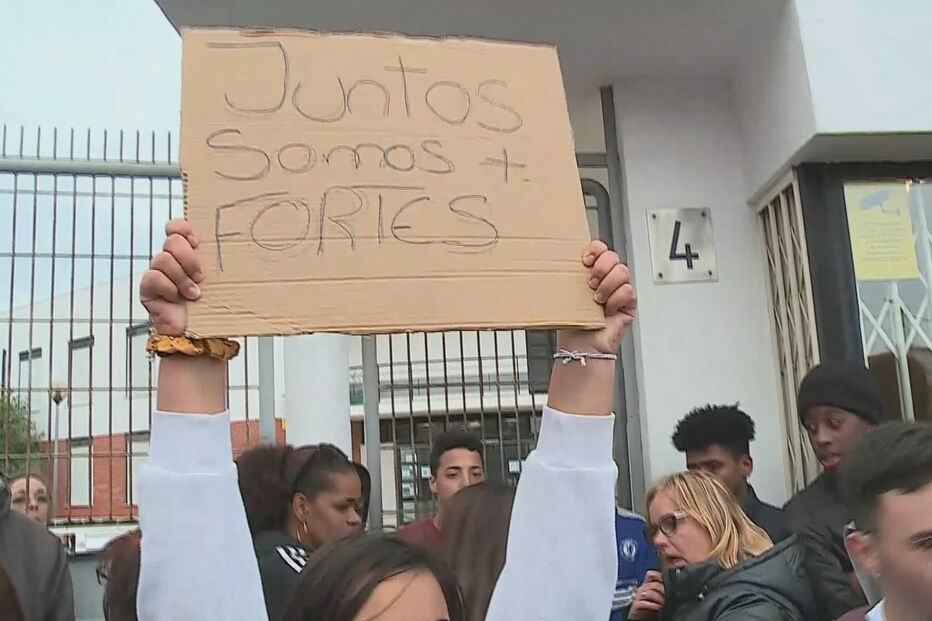 Juntos
Somos +
FORTES
4